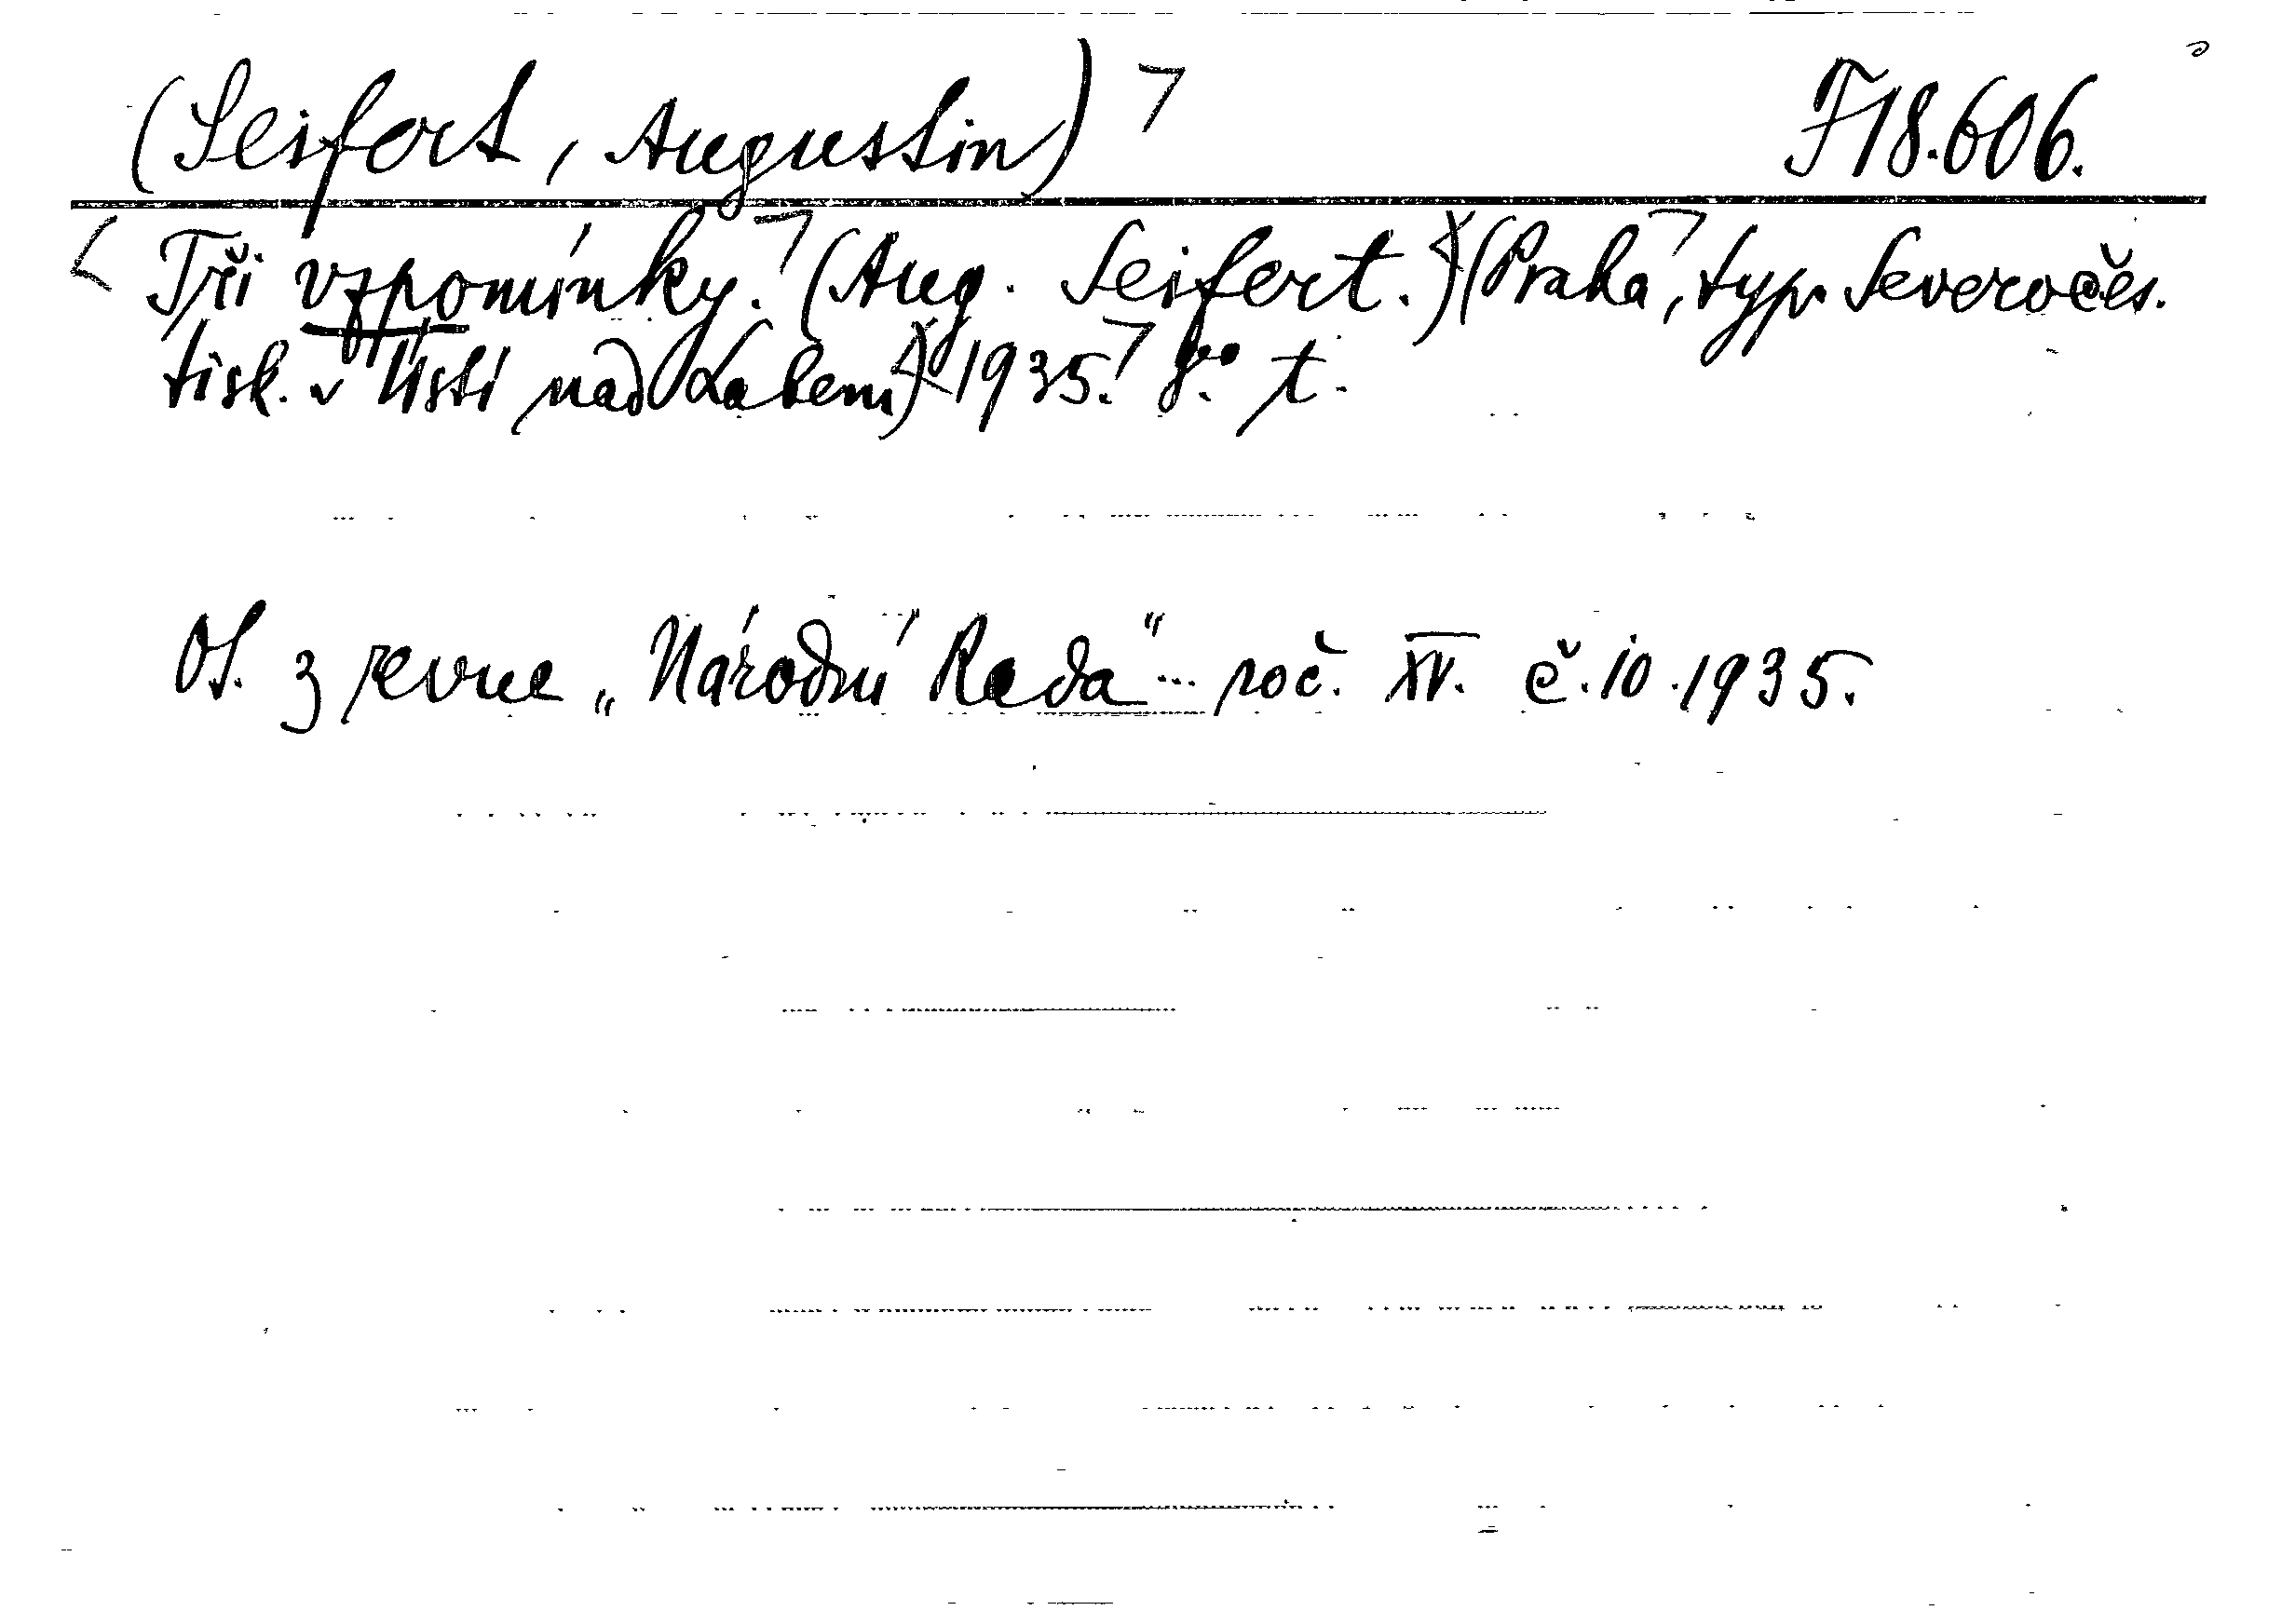 (Seifert, Augustin) F 18.606.
Tři vzpomínky. (Aug. Seifert.) (Praha, typ. Severočes.
tisk. v Ústí nad Labem) 1935. 8° t.
Ot. z revue „Národní Rada"... roč. XV. č. 10. 1935.